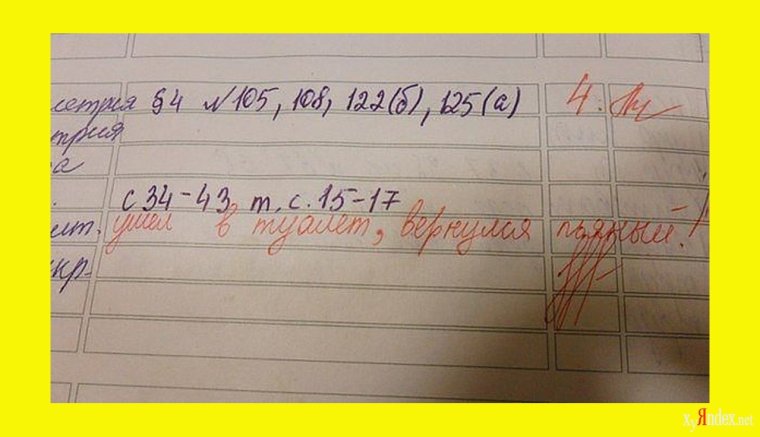 §4 №105, 108, 122(б), 125(а) 4.
с 34-43 т, с. 15-17
ушел в туалет, вернулся пьяный!
xyЯndex.net